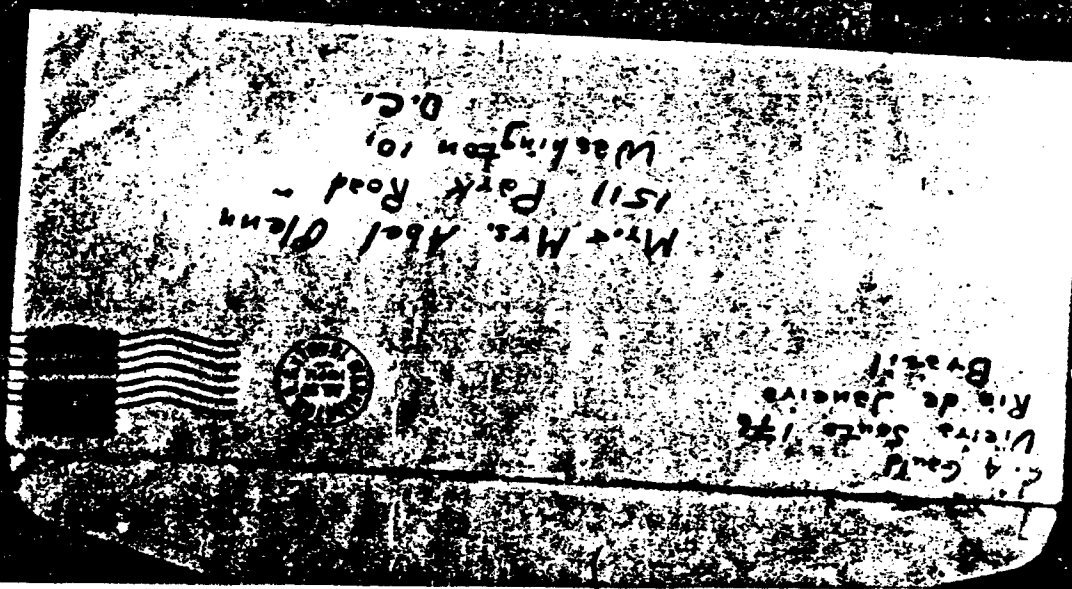 Vieira Souto 176
Rio de Janeiro
Brazil
Mr. & Mrs. Abel Plenn
1511 Park Road -
Washington 10,
D.C.